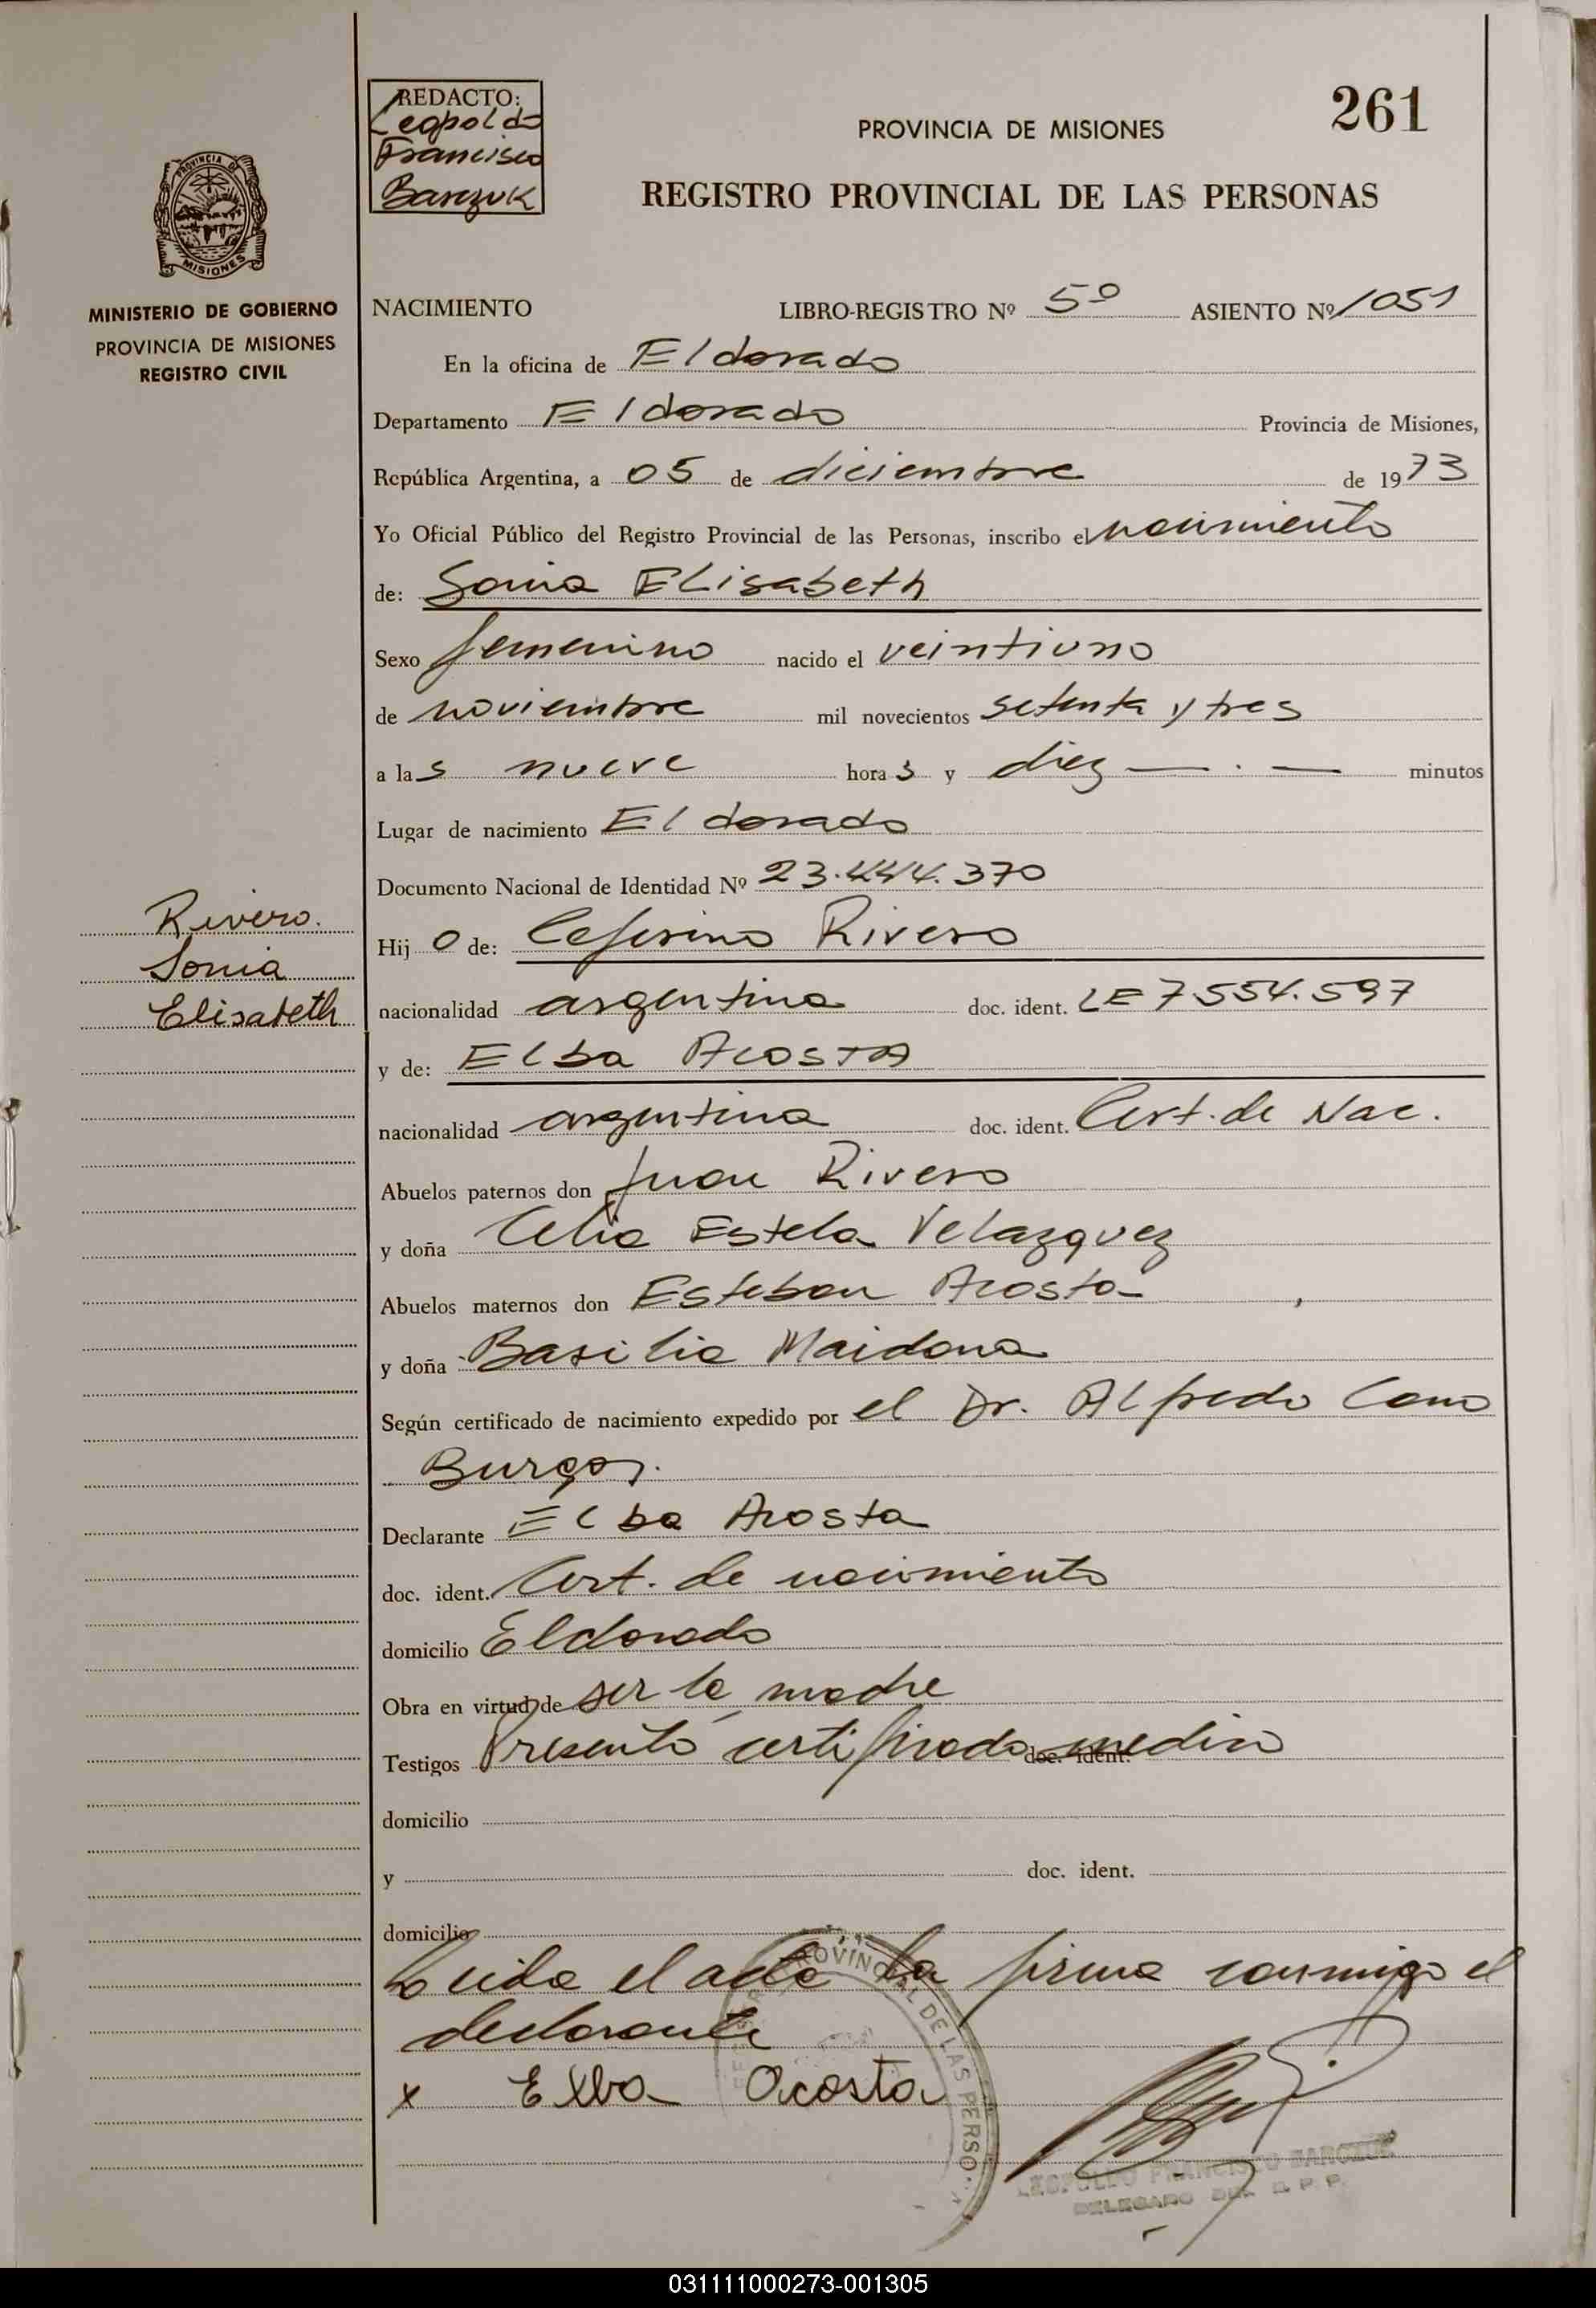 REDACTO:
Leopoldo
Francisco
Barczuk
PROVINCIA DE MISIONES
261
REGISTRO PROVINCIAL DE LAS PERSONAS
PROVINCIA DE
MISIONES
MINISTERIO DE GOBIERNO
PROVINCIA DE MISIONES
REGISTRO CIVIL
NACIMIENTO LIBRO-REGISTRO Nº 5º ASIENTO Nº 1051
En la oficina de Eldorado
Departamento Eldorado Provincia de Misiones,
República Argentina, a 05 de diciembre de 1973
Yo Oficial Público del Registro Provincial de las Personas, inscribo el nacimiento
de: Sonia ELisabeth
Sexo femenino nacido el veintiuno
de noviembre mil novecientos setenta y tres
a las nueve horas y diez minutos
Lugar de nacimiento Eldorado
Documento Nacional de Identidad Nº 23.444.370
Rivero.
Sonia
Elisabeth
Hijo de: Ceferino Rivero
nacionalidad argentina doc. ident. LE 7554.597
y de: Elba Acosta
nacionalidad argentina doc. ident. Cert. de Nac.
Abuelos paternos don Juan Rivero
y doña Celia Estela Velazquez
Abuelos maternos don Esteban Acosta
y doña Basilia Maidana
Según certificado de nacimiento expedido por el Dr. ALfredo Cano
Burgos.
Declarante Elba Acosta
doc. ident. Cert. de nacimiento
domicilio Eldorado
Obra en virtud de ser la madre
Testigos Presentó certificado doc. ident. medico
domicilio
y doc. ident.
domicilio
Leida el acta la firma conmigo el
declarante
x Elba Acosta
PROVINCIAL DE LAS PERSO
LEOPOLDO FRANCISCO BARCZUK
DELEGADO DEL R. P. P.
031111000273-001305